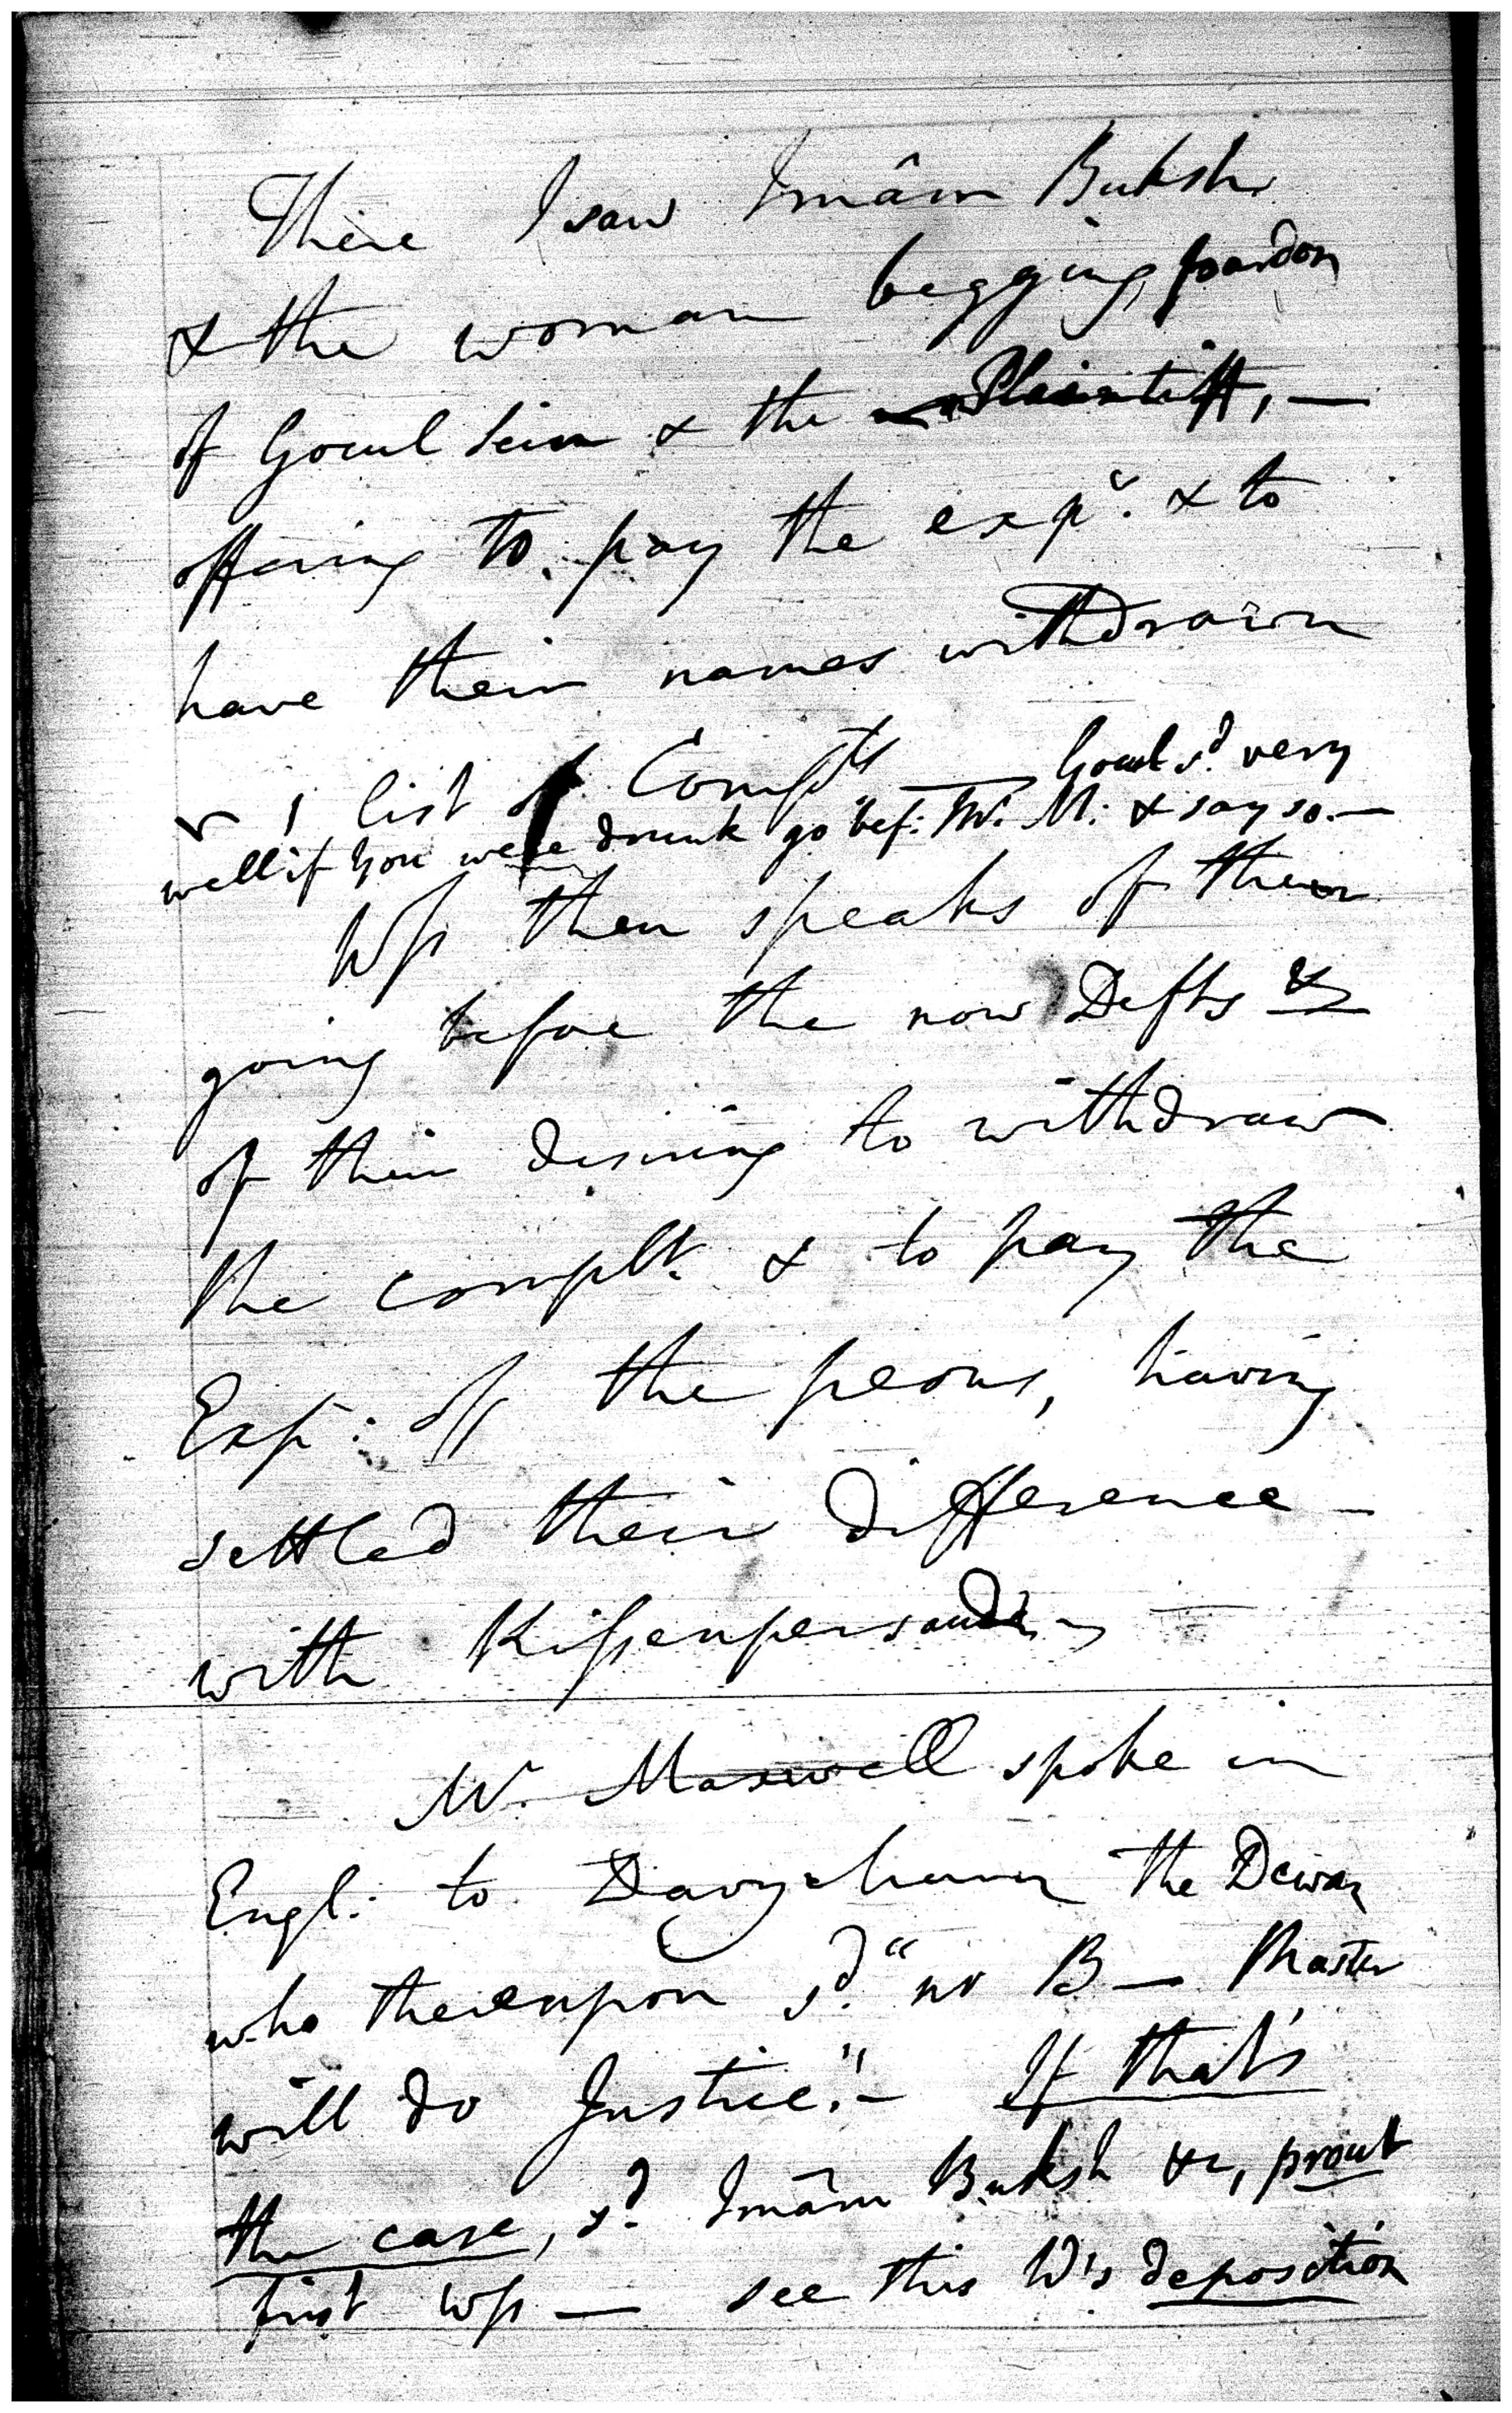 There I saw Imâm Buksh
& the woman begging pardon
of Gocul Sein & the Plaintiff, —
offering to pay the exp.s & to
have their names withdrawn
list of Compts — Gocul sd. very
well if you were drunk go bef: Mr. M: & say so. —
Wss then speaks of their
going before the now Defts &
of their desiring to withdraw
the complt. & to pay the
Exp: of the peons, having
settled their difference —
with Kissenpersaud
Mr. Maxwell spoke in
Engl: to Davychurn the Dewan
who thereupon sd. "no B — Master
will do Justice." — If that's
the case, sd. Imâm Buksh &c, prout
first Wss — see this W's deposition